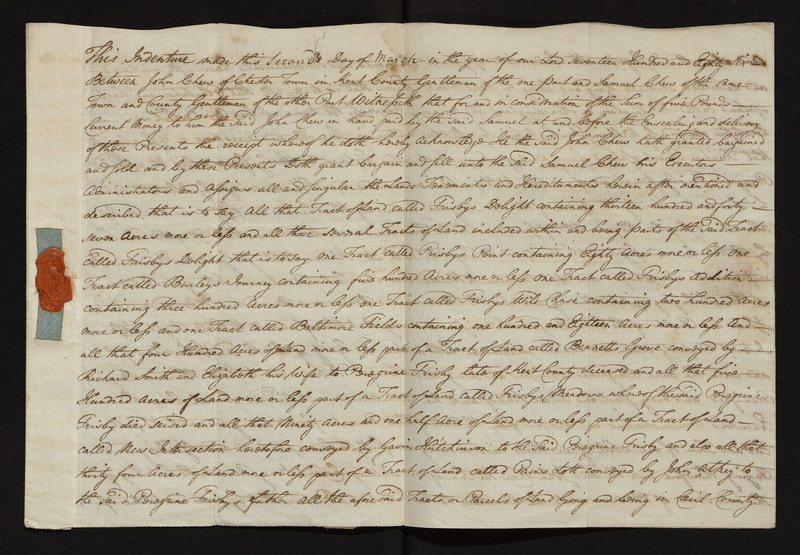 This Indenture made this Second Day of March in the year of our Lord seventeen Hundred and Eighty Six
Between John Chew of Chester Town in Kent County Gentleman of the one part and Samuel Chew of the same
Town and County Gentleman of the other Part Witnesseth that for and in consideration of the Sum of five Pounds
Current Money to him the said John Chew in hand paid by the said Samuel at and before the Ensealing and delivery
of these Presents the receipt whereof he doth hereby Acknowledge He the said John Chew hath granted bargained
and sold and by these Presents Doth grant bargain and sell unto the said Samuel Chew his Executors
Administrators and Assigns all and singular the Lands Tenements and Hereditaments herein after mentioned and
described that is to say All that Tract of Land called Frisbys Delight containing thirteen hundred and forty
seven Acres more or less and all those several Tracts of Land included within and being parts of the said Tract
called Frisbys Delight that is to say one Tract called Frisbys Point containing Eighty Acres more or less one
Tract called Burleys Journey containing five hundred Acres more or less one Tract called Frisbys Addition
containing three hundred Acres more or less one Tract called Frisbys Wild Chase containing two hundred Acres
more or less and one Tract called Baltimore Fields containing one hundred and Eighteen Acres more or less And
all that four Hundred Acres of Land more or less part of a Tract of Land called Bennetts Grove conveyed by
Richard Smith and Elizabeth his Wife to Peregrine Frisby late of Kent County deceased and all that five
Hundred Acres of Land more or less part of a Tract of Land called Frisbys Meadows whereof the said Peregrine
Frisby died seised and all that Ninety Acres and one half Acre of Land more or less part of a Tract of Land
called New Intersection heretofore conveyed by Gavin Hutchinson to the said Peregrine Frisby and also all that
thirty four Acres of Land more or less part of a Tract of Land called Pains Loth conveyed by John Athey to
the said Peregrine Frisbys father All the afore said Tracts or Parcels of Land lying and being in Cecil County